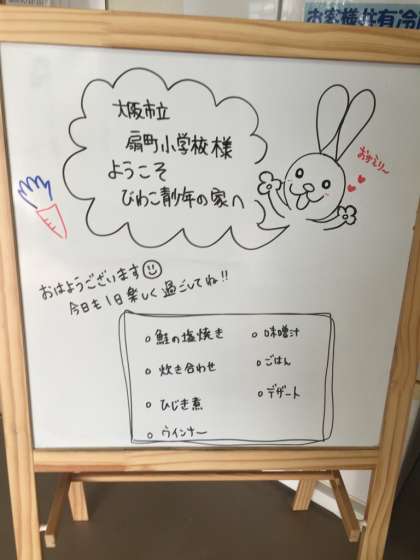 お客様共有冷
大阪市立
扇町小学校様
ようこそ
びわこ青少年の家へ
おかえり〜
おはようございます
今日も1日楽しく過ごしてね!!
鮭の塩焼き
炊き合わせ
ひじき煮
ウインナー
味噌汁
ごはん
デザート